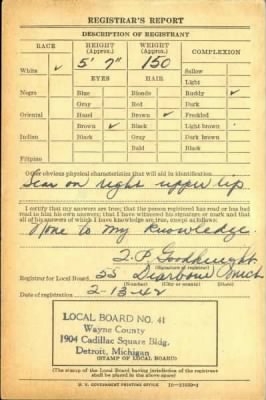 REGISTRAR'S REPORT
DESCRIPTION OF REGISTRANT
RACE HEIGHT (Approx.) WEIGHT (Approx.) COMPLEXION
5' 7" 150
White ✓ Sallow
EYES HAIR Light
Negro Blue Blonde Ruddy ✓
Gray Red Dark
Oriental Hazel Brown ✓ Freckled
Brown ✓ Black Light brown
Indian Black Gray Dark brown
Bald Black
Filipino
Other obvious physical characteristics that will aid in identification
Scar on right upper lip
I certify that my answers are true; that the person registered has read or has had
read to him his own answers; that I have witnessed his signature or mark and that
all of his answers of which I have knowledge are true, except as follows:
None to my knowledge.
(Signature of registrar)
Registrar for Local Board 55 Dearborn Mich
(Number) (City or county) (State)
Date of registration 2-13-42
LOCAL BOARD NO. 41
Wayne County
1904 Cadillac Square Bldg.
Detroit, Michigan
(STAMP OF LOCAL BOARD)
(The stamp of the Local Board having jurisdiction of the registrant
shall be placed in the above space)
U. S. GOVERNMENT PRINTING OFFICE